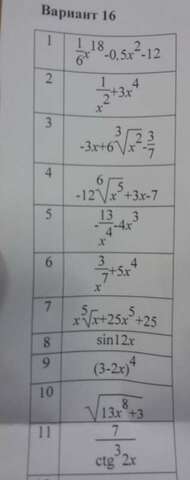 Вариант 16
1 \frac{1}{6}x^{18}-0,5x^2-12
2 x^{\frac{1}{2}}+3x^4
3 -3x+6\sqrt[3]{x^2}-\frac{3}{7}
4 -12\sqrt[6]{x^5}+3x-7
5 x^{-\frac{13}{4}}-4x^3
6 x^{\frac{3}{7}}+5x^4
7 x\sqrt[5]{x}+25x^5+25
8 sin12x
9 (3-2x)^4
10 \sqrt{13x^8+3}
11 \frac{7}{ctg^3 2x}